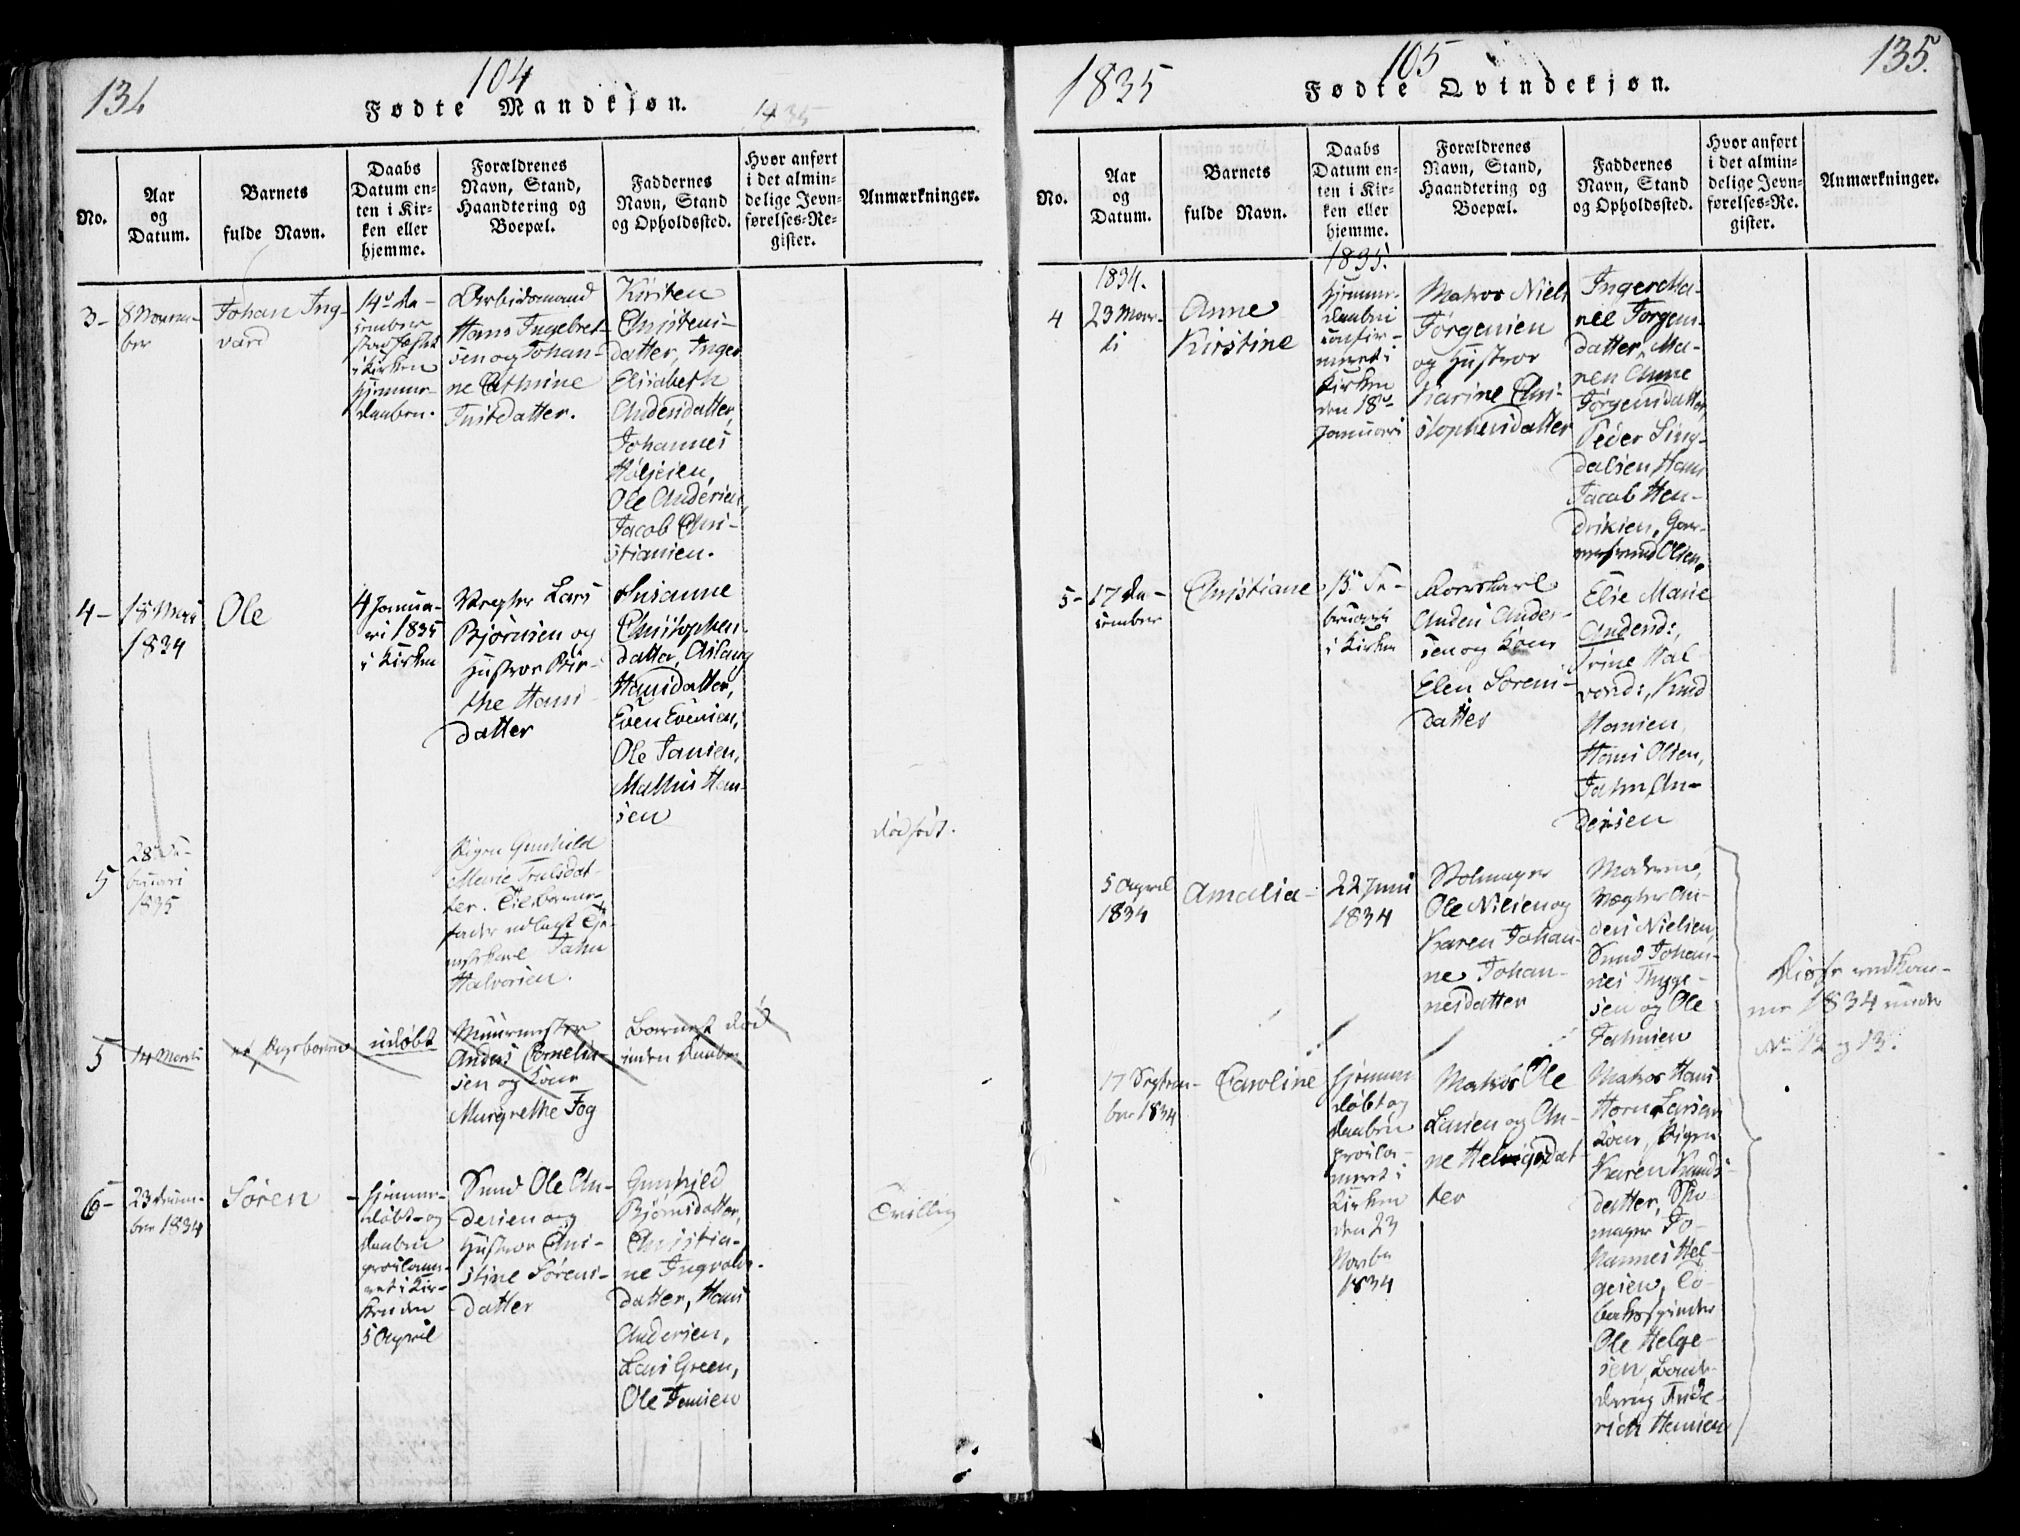 134
104
Fødte Mandkjøn.
1835
No.
Aar
og
Datum.
Barnets
fulde Navn.
Daabs
Datum en-
ten i Kir-
ken eller
hjemme.
Forældrenes
Navn, Stand,
Haandtering og
Boepæl.
Faddernes
Navn, Stand
og Opholdssted.
Hvor anført
i det almin-
delige Jevn-
førelses-Re-
gister.
Anmærkninger.
3-
8 Novem-
ber
Johan Ing-
vard
14de De-
cember
i Kirken
Hjemme-
daaben.
Arbeidsmand
Hans Ingebret-
sen og Johan-
ne Cathrine
datter.
Kirsten
Christens-
datter, Inger
Elisabeth
Andersdatter,
Johannes
Ole Andersen,
Jacob Chri-
stiansen.
4-
1834
Ole
4 Janua-
ri 1835
i Kirken
Vægter Lars
Bjørnsen og
Hustroe Bir-
the Hans-
datter
Susanne
Christophers-
datter, Aslaug
Hansdatter,
Even Evensen,
Ole Jansen,
Mathis Han-
sen
5
28 Fe-
bruari
1835
Pigen Gunhild
Marie Trulsdat-
ter. Til Barne-
fader udlagt Tje-
Jahn
Halvorsen.
dødfødt.
5
14 Marts
udøbt
Muurmester
Anders Corneliu-
sen og Kone
Margrethe Fog
Barnet død
inden Daaben
6-
23 Decem-
ber 1834
Søren
hjemme-
døbt og
Daaben
proclame-
ret i Kir-
ken den
5 April
Svend Ole An-
dersen og
Hustroe Chri-
stine Sørens-
datter
Gunhild
Bjørnsdatter,
Christia-
ne Ingvolds-
datter, Hans
Andersen,
Lars Green,
Ole Jensen
Tvilling
1835
105
Fødte Qvindekjøn.
135.
No.
Aar
og
Datum.
Barnets
fulde Navn.
Daabs
Datum en-
ten i Kir-
ken eller
hjemme.
Forældrenes
Navn, Stand,
Haandtering og
Boepæl.
Faddernes
Navn, Stand
og Opholdssted.
Hvor anført
i det almin-
delige Jevn-
førelses-Re-
gister.
Anmærkninger.
4
1834.
23 Mar-
ti
Anne
Kirstine
1835.
Hjemme-
daaben
confir-
meret i
Kirken
den 18de
Januari
Matros Niels
Jørgensen
og Hustroe
Karine Chri-
stophersdatter
Inger Ma-
rie Jørgens-
datter, Ma-
ren Anne
Jørgensdatter,
Peder Sing-
dalsen, Hans
Jacob Hen-
driksen,
Olsen.
5-
17 De-
cember
Christiane
15 Fe-
bruari
i Kirken
Anders Ander-
sen og Kone
Elen Sørens-
datter
Else Marie
Andersd:,
Trine Hal-
vorsd:, Knud
Hansen,
Hans Olsen,
Jahn An-
dersen
5 April
1834
Amalia
22 Juni
1834
Ole Nilsen og
Karen Johan-
ne Johan-
nesdatter
Moderen,
Vægter An-
ders Nielsen,
Svend Johan-
nes Thyge-
sen og Ole
Jahnsen
Disse vedkom-
mer 1834 under
No 12 og 13.
17 Septem-
ber 1834
Caroline
hjemme-
døbt og
Daaben
procla-
meret i
Kirken
den 23
Novbr
1834
Matros Ole
Larsen og An-
ne Helvigsdat-
ter
Matros Hans
Horn Larsens
Kone, Pigen
Karen Knuds-
datter, Sko-
mager Jo-
hannes Hel-
gesen, To-
baksspinder
Ole Helge-
sen,
Frede-
rich Hansen